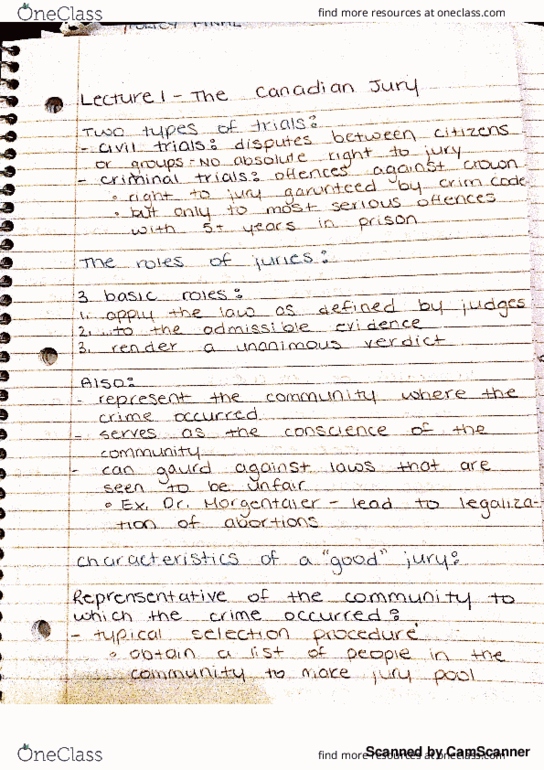 OneClass
find more resources at oneclass.com
POLICY FINAL
Lecture 1 - The Canadian Jury
Two types of trials:
- civil trials: disputes between citizens
or groups - NO absolute right to jury
- criminal trials: offences against crown
• right to jury garunteed by crim code
• but only to most serious offences
with 5+ years in prison
The roles of juries:
3 basic roles:
1. apply the law as defined by judges
2. ...to the admissible evidence
3. render a unanimous verdict
Also:
- represent the community where the
crime occurred
- serves as the conscience of the
community
- can gaurd against laws that are
seen to be unfair
• Ex. Dr. Morgentaler - lead to legaliza-
tion of abortions
characteristics of a "good" jury:
Reprensentative of the community to
which the crime occurred:
- typical selection procedure
• obtain a list of people in the
community to make jury pool
OneClass
find more resources at oneclass.com
Scanned by CamScanner